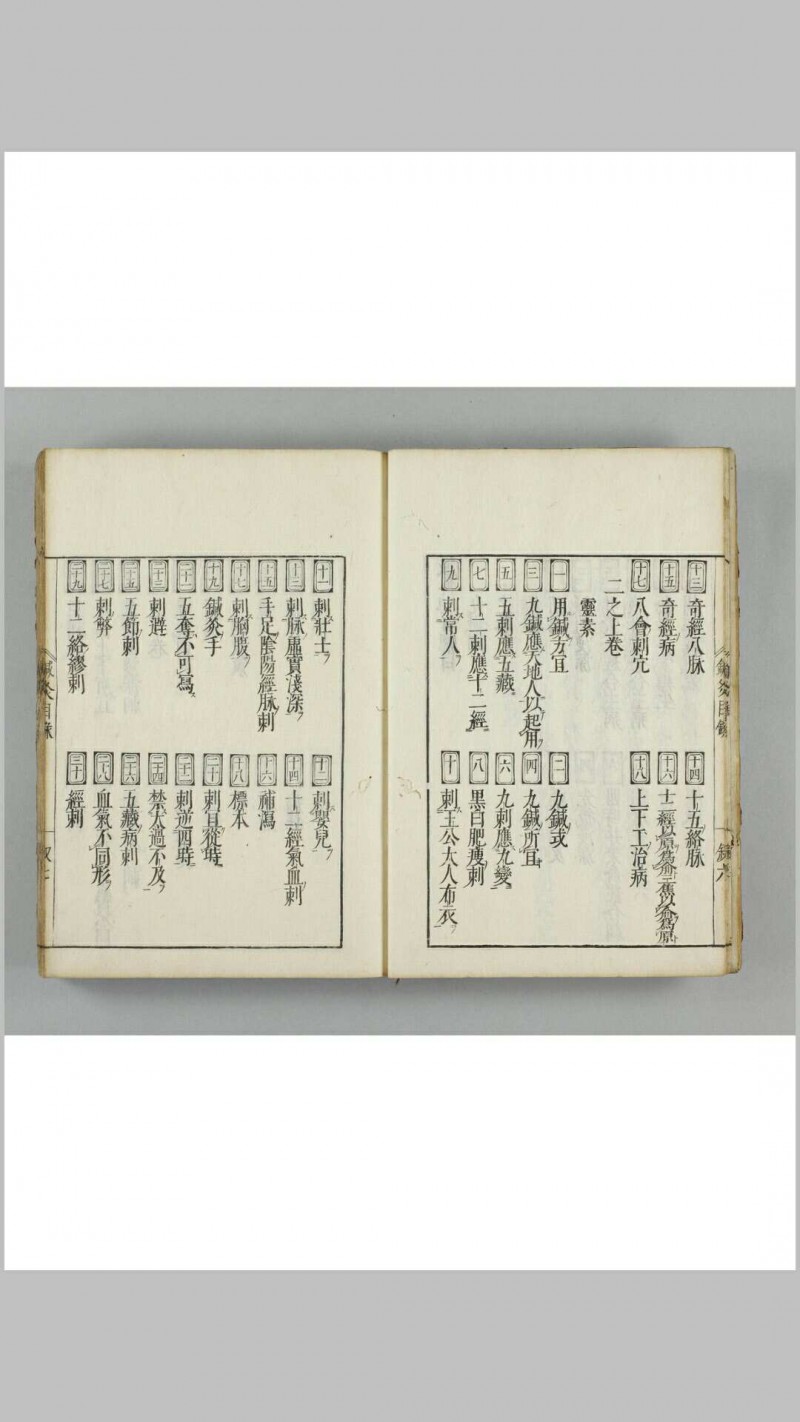 鍼灸目錄 錄六
十三 奇經八脉 十四 十五絡脉
十五 奇經病 十六 十二經以原爲兪三焦以兪爲原
十七 八會刺穴 十八 上下工治病
二之上卷
靈素
一 用鍼方宜 二 九鍼式
三 九鍼應天地人以起用 四 九鍼所宜
五 五刺應五藏 六 九刺應九變
七 十二刺應十二經 八 黑白肥瘦刺
九 刺常人 十 刺王公大人布衣
十一 刺壯士 十二 刺嬰兒
十三 刺脉虛實淺深 十四 十二經氣血刺
十五 手足陰陽經脉刺 十六 補瀉
十七 刺胸腹 十八 標本
十九 鍼灸手 二十 刺宜從時
二十一 五奪不可寫 二十二 刺逆四時
二十三 刺避 二十四 禁太過不及
二十五 五節刺 二十六 五藏病刺
二十七 刺弊 二十八 血氣不同形
二十九 十二絡繆刺 三十 經刺
鍼灸目錄